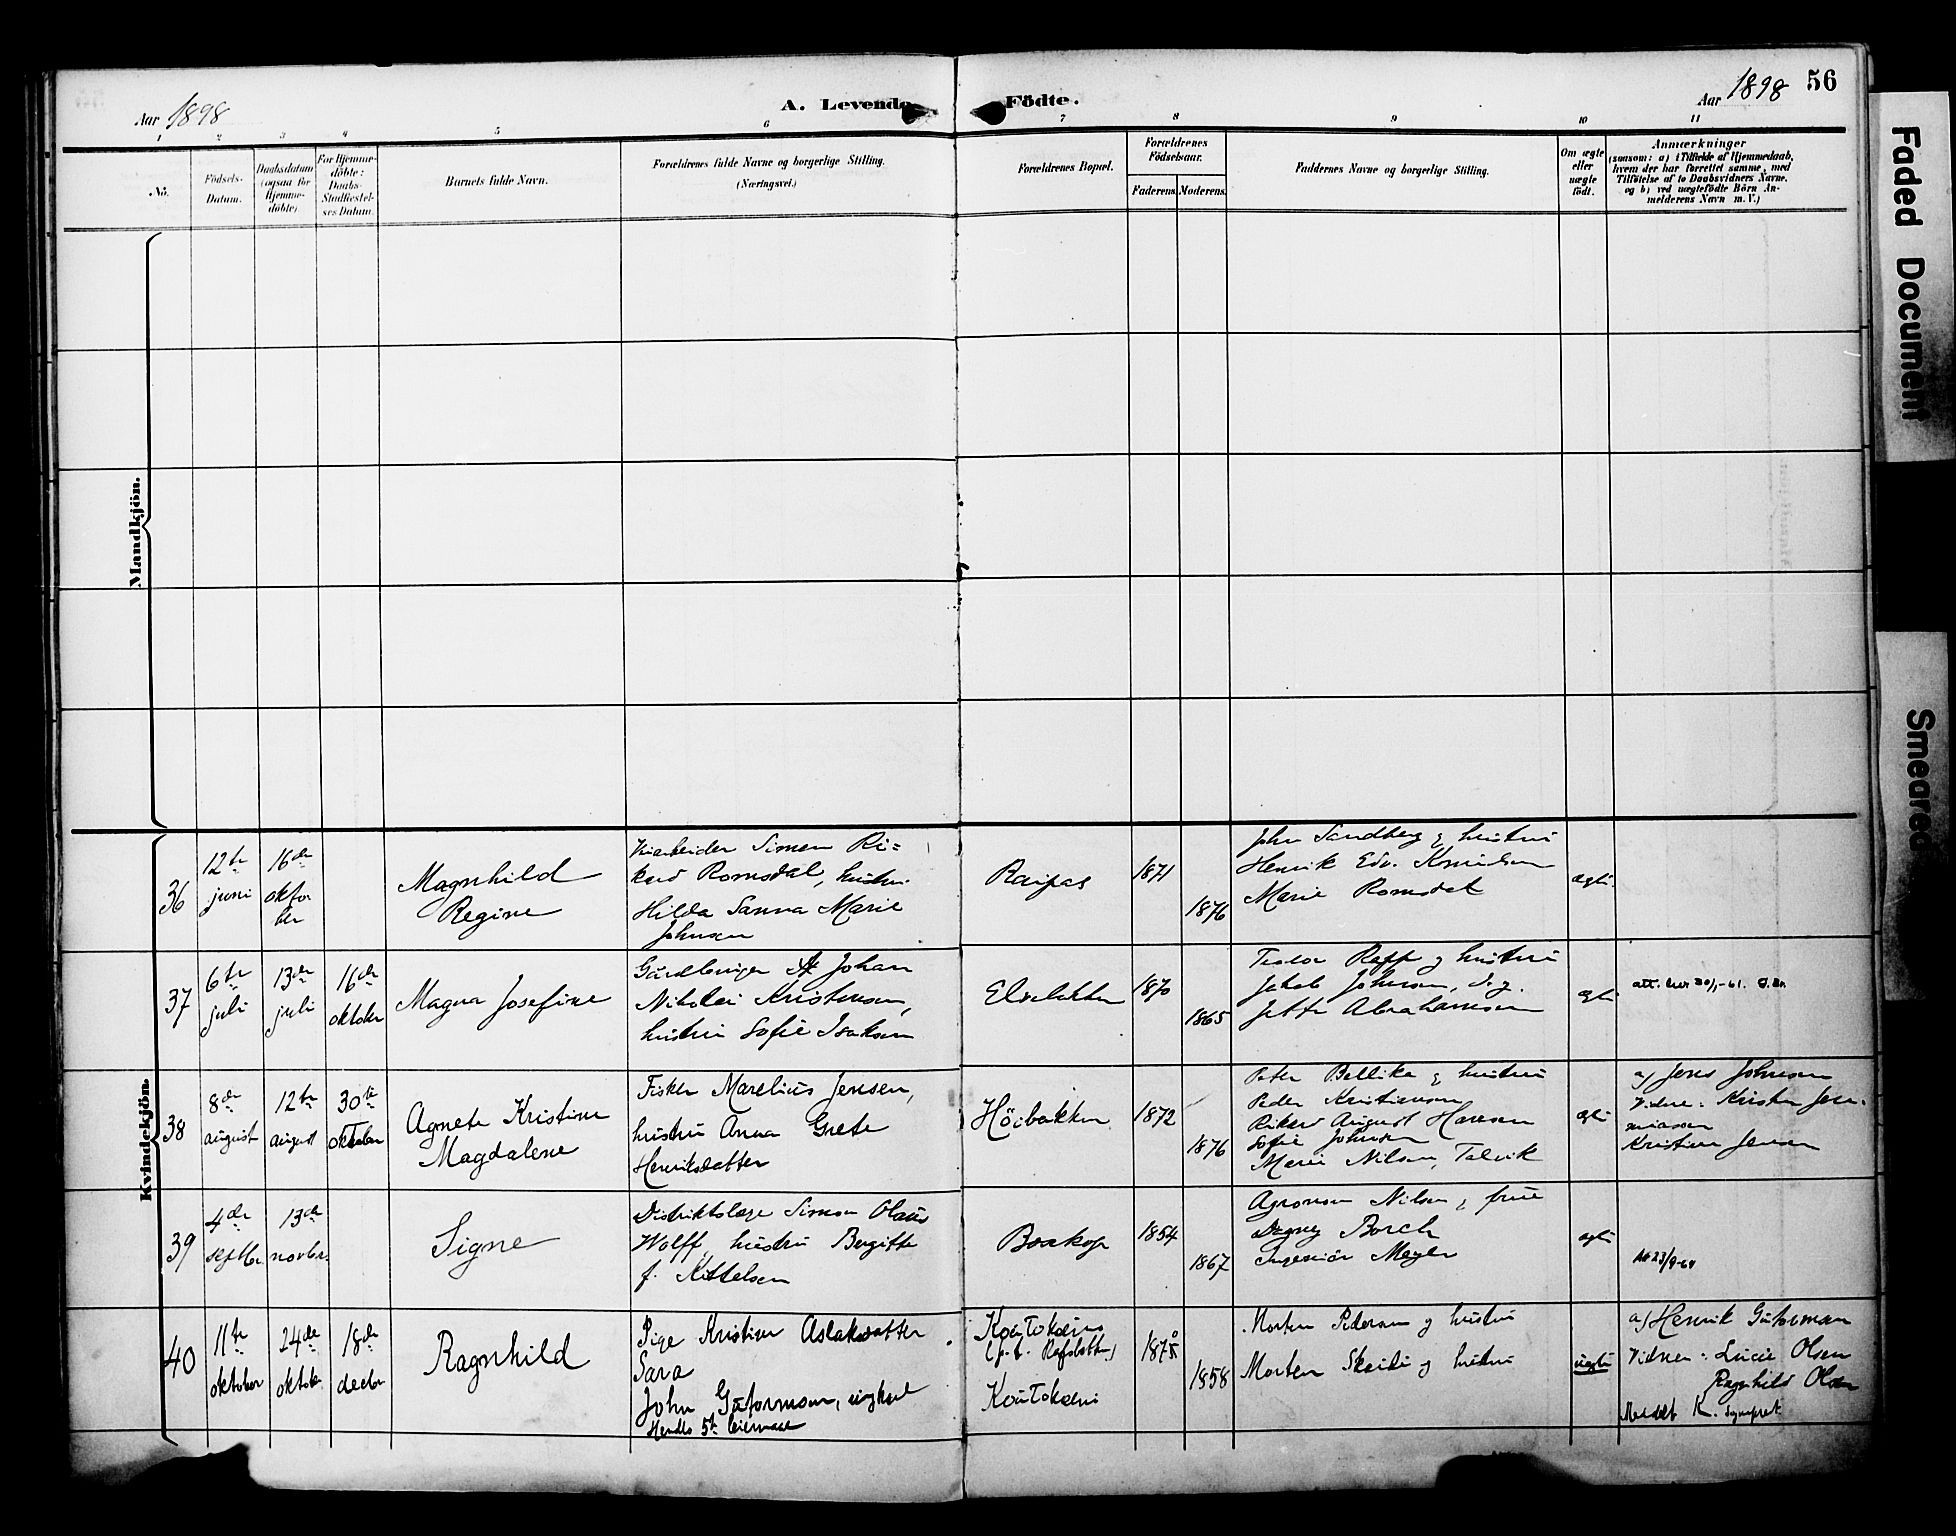 56
Aar 1898
A. Levende Födte.
Aar 1898
1 2 3 4 5 6 7 8 9 10 11
No.
Födsels-Datum.
Daabsdatum (ogsaa for Hjemmedöbte)
For Hjemmedöbte: Daabs-Stadfæstelses Datum.
Barnets fulde Navn.
Forældrenes fulde Navne og borgerlige Stilling.
(Næringsvei.)
Forældrenes Bopæl.
Forældrenes Födselsaar.
Faderens. Moderens.
Faddernes Navne og borgerlige Stilling.
Om ægte eller uægte født.
Anmærkninger
(saasom: a) i Tilfælde af Hjemmedaab,
hvem der har forrettet samme, med
Tilføielse af to Daabsvidners Navne.
og b) ved uægtefödte Börn An-
melderens Navn m. V.)
Mandkjön.
Kvindekjön.
36
12te juni
16de oktober
Magnhild
Regine
Simon Ri=
kard Romsdal, hustru
Hilda Sanna Marie
Johnsen
Raipas
1871
1876
John Sandberg & hustru
Henrik Edv. Knudsen
Marie Romsdal
ægte
37
6te juli
13de juli
16de oktober
Magna Josefine
Johan
Nikolai Kristensen,
hustru Sofie Isaksen
Elvebakken
1870
1865
Rapp & hustru
Jakob Johnsen,
Jette Abrahamsen
ægte
38
8de august
12te august
30te oktober
Agnete Kristine
Magdalene
Fisker Marelius Jensen,
hustru Anna Grete
Henriksdatter
Höibakken
1872
1876
Peter Bellika & hustru
Peder Kristiansen
Rikard August Hansen
Sofie Johnsen
Marie Nilsen, Talvik
ægte
af Jens Johnsen
Vidne: Kristen
Kristine Jensen
39
4de septbr.
13de novbr.
Signe
Distriktslæge Simon Olaus
Wolff, hustru Bergitte
f. Kittelsen
Bosekop
1854
1867
Agronom Nilsen & frue
Dagny Borch
Ingeniör Meyer
ægte
Att 23/9-64
40
11te oktober
24de oktober
18de decbr
Ragnhild
Pige Kristine Aslaksdatter
Sara
John Guttormsen, ungkarl
Hendes 5te leiermaal
Koutokeino
Koutokeino
1858
Morten Pedersen & hustru
Morten Skaidi & hustru
uægte
af Henrik Guttormsen
Vidner: Lucie Olsen
Ragnhild Olsen
Faded Document
Smeared